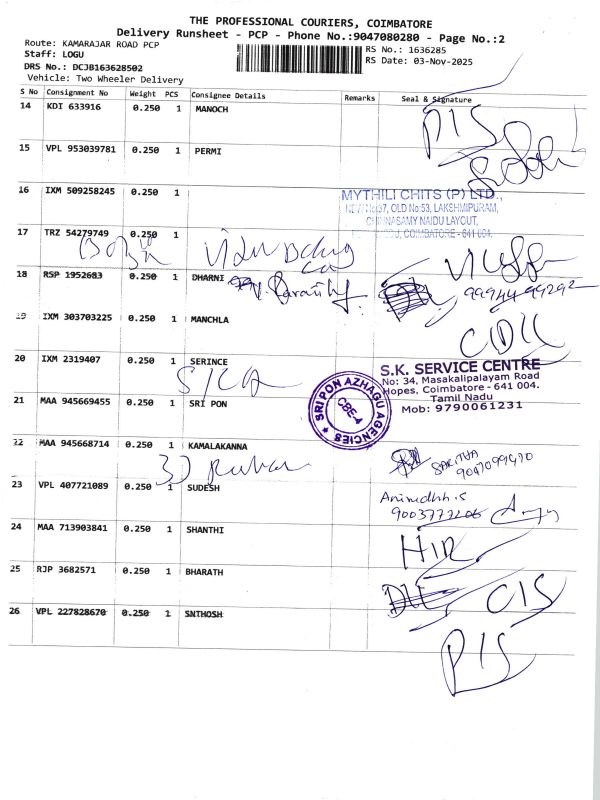 THE PROFESSIONAL COURIERS, COIMBATORE
Delivery Runsheet - PCP - Phone No.:9047080280 - Page No.:2
Route: KAMARAJAR ROAD PCP
RS No.: 1636285
Staff: LOGU
RS Date: 03-Nov-2025
DRS No.: DCJB163628502
Vehicle: Two Wheeler Delivery
S No Consignment No Weight PCS Consignee Details Remarks Seal & Signature
14 KDI 633916 0.250 1 MANOCH
PIS
15 VPL 953039781 0.250 1 PERMI
16 IXM 509258245 0.250 1
MYTHILI CHITS (P) LTD.,
NEW No:37, OLD No:53, LAKSHMIPURAM,
CHINNASAMY NAIDU LAYOUT,
COIMBATORE - 641 004.
17 TRZ 54279749 0.250 1
18 RSP 1952683 0.250 1 DHARNI
19 IXM 303703225 0.250 1 MANCHLA
20 IXM 2319407 0.250 1 SERINCE
S.K. SERVICE CENTRE
No: 34, Masakalipalayam Road
Hopes, Coimbatore - 641 004.
Tamil Nadu
Mob: 9790061231
21 MAA 945669455 0.250 1 SRI PON
SRI PON AZHAGU AGENCIES
CBE-4
22 MAA 945668714 0.250 1 KAMALAKANNA
SARITHA
23 VPL 407721089 0.250 1 SUDESH
Anirudhh.S
24 MAA 713903841 0.250 1 SHANTHI
25 RJP 3682571 0.250 1 BHARATH
CIS
26 VPL 227828670 0.250 1 SNTHOSH
PIS